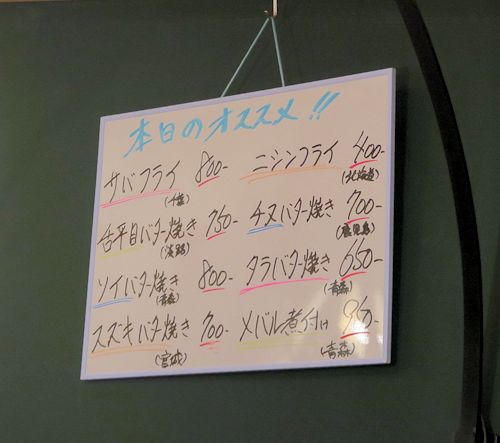 本日のオススメ!!
サバフライ 800-
(千葉)
ニシンフライ 400-
(北海道)
舌平目バター焼き 750-
(淡路)
チヌバター焼き 700-
(鹿児島)
ソイバター焼き 800-
(青森)
タラバター焼き 650-
(青森)
スズキバター焼き 700-
(宮城)
メバル煮付け 960-
(青森)